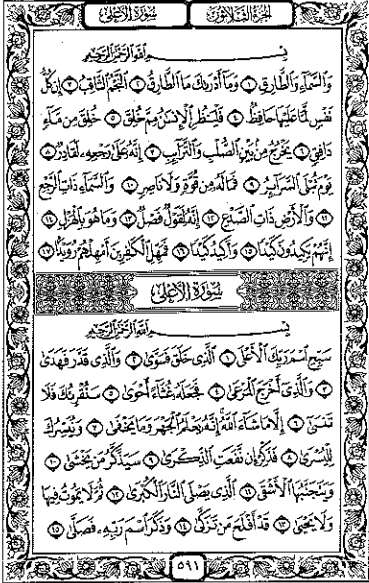 سُورَةُ الأَعْلَى الجُزْءُ الثَّلَاثُونَ
بِسْمِ اللَّهِ الرَّحْمَٰنِ الرَّحِيمِ
وَالسَّمَاءِ وَالطَّارِقِ ١ وَمَا أَدْرَىٰكَ مَا الطَّارِقُ ٢ النَّجْمُ الثَّاقِبُ ٣ إِن كُلُّ
نَفْسٍ لَّمَّا عَلَيْهَا حَافِظٌ ٤ فَلْيَنظُرِ الْإِنسَٰنُ مِمَّ خُلِقَ ٥ خُلِقَ مِن مَّاءٍ
دَافِقٍ ٦ يَخْرُجُ مِنْ بَيْنِ الصُّلْبِ وَالتَّرَائِبِ ٧ إِنَّهُ عَلَىٰ رَجْعِهِ لَقَادِرٌ ٨
يَوْمَ تُبْلَى السَّرَائِرُ ٩ فَمَا لَهُ مِن قُوَّةٍ وَلَا نَاصِرٍ ١٠ وَالسَّمَاءِ ذَاتِ الرَّجْعِ
١١ وَالْأَرْضِ ذَاتِ الصَّدْعِ ١٢ إِنَّهُ لَقَوْلٌ فَصْلٌ ١٣ وَمَا هُوَ بِالْهَزْلِ ١٤
إِنَّهُمْ يَكِيدُونَ كَيْدًا ١٥ وَأَكِيدُ كَيْدًا ١٦ فَمَهِّلِ الْكَٰفِرِينَ أَمْهِلْهُمْ رُوَيْدًا ١٧
سُورَةُ الأَعْلَى
بِسْمِ اللَّهِ الرَّحْمَٰنِ الرَّحِيمِ
سَبِّحِ اسْمَ رَبِّكَ الْأَعْلَى ١ الَّذِي خَلَقَ فَسَوَّىٰ ٢ وَالَّذِي قَدَّرَ فَهَدَىٰ
٣ وَالَّذِي أَخْرَجَ الْمَرْعَىٰ ٤ فَجَعَلَهُ غُثَاءً أَحْوَىٰ ٥ سَنُقْرِئُكَ فَلَا
تَنسَىٰ ٦ إِلَّا مَا شَاءَ اللَّهُ إِنَّهُ يَعْلَمُ الْجَهْرَ وَمَا يَخْفَىٰ ٧ وَنُيَسِّرُكَ
لِلْيُسْرَىٰ ٨ فَذَكِّرْ إِن نَّفَعَتِ الذِّكْرَىٰ ٩ سَيَذَّكَّرُ مَن يَخْشَىٰ ١٠
وَيَتَجَنَّبُهَا الْأَشْقَى ١١ الَّذِي يَصْلَى النَّارَ الْكُبْرَىٰ ١٢ ثُمَّ لَا يَمُوتُ فِيهَا
وَلَا يَحْيَىٰ ١٣ قَدْ أَفْلَحَ مَن تَزَكَّىٰ ١٤ وَذَكَرَ اسْمَ رَبِّهِ فَصَلَّىٰ ١٥
٥٩١